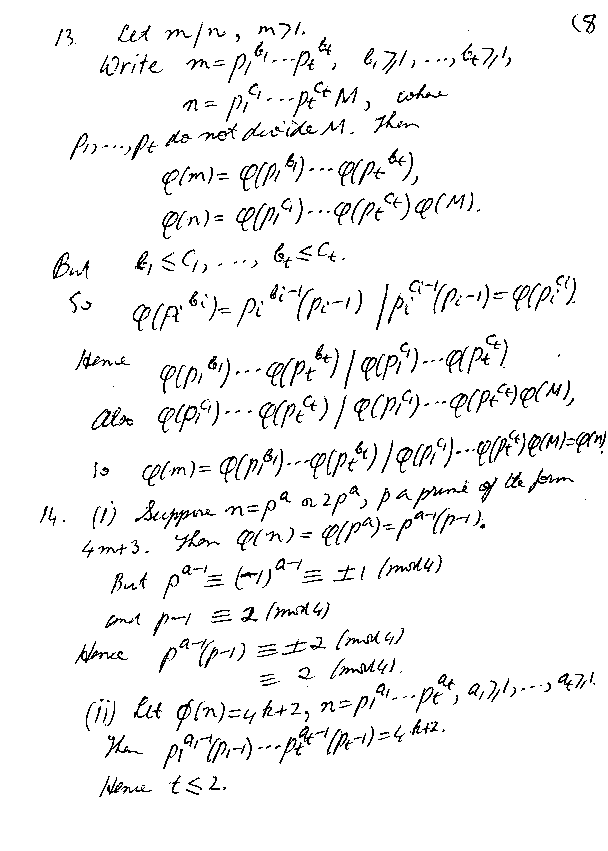 (8
13. Let m/n, m>1.
Write m = p₁^{b₁}⋯p_t^{b_t}, b₁⩾1, …, b_t⩾1,
n = p₁^{c₁}⋯p_t^{c_t} M, where
p₁, …, p_t do not divide M. Then
φ(m) = φ(p₁^{b₁})⋯φ(p_t^{b_t}),
φ(n) = φ(p₁^{c₁})⋯φ(p_t^{c_t}) φ(M).
But b₁ ≤ c₁, …, b_t ≤ c_t.
So φ(p_i^{b_i}) = p_i^{b_i-1}(p_i-1) / p_i^{c_i-1}(p_i-1) = φ(p_i^{c_i})
Hence φ(p₁^{b₁})⋯φ(p_t^{b_t}) / φ(p₁^{c₁})⋯φ(p_t^{c_t})
Also φ(p₁^{c₁})⋯φ(p_t^{c_t}) / φ(p₁^{c₁})⋯φ(p_t^{c_t})φ(M),
so φ(m) = φ(p₁^{b₁})⋯φ(p_t^{b_t}) / φ(p₁^{c₁})⋯φ(p_t^{c_t})φ(M) = φ(n)
14. (i) Suppose n = p^a or 2p^a, p a prime of the form
4m+3. Then φ(n) = φ(p^a) = p^{a-1}(p-1).
But p^{a-1} ≡ (-1)^{a-1} ≡ ±1 (mod 4)
and p-1 ≡ 2 (mod 4)
Hence p^{a-1}(p-1) ≡ ±2 (mod 4)
≡ 2 (mod 4).
(ii) Let ϕ(n) = 4k+2, n = p₁^{a₁}⋯p_t^{a_t}, a₁⩾1, …, a_t⩾1.
Then p₁^{a₁-1}(p₁-1)⋯p_t^{a_t-1}(p_t-1) = 4k+2.
Hence t ≤ 2.